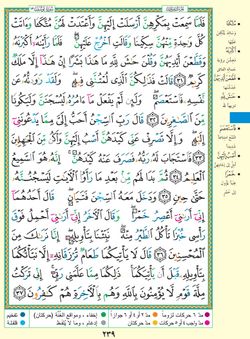 فَلَمَّا سَمِعَتْ بِمَكْرِهِنَّ أَرْسَلَتْ إِلَيْهِنَّ وَأَعْتَدَتْ لَهُنَّ مُتَّكَـًٔا وَءَاتَتْ
كُلَّ وَٰحِدَةٍ مِّنْهُنَّ سِكِّينًا وَقَالَتِ ٱخْرُجْ عَلَيْهِنَّ فَلَمَّا رَأَيْنَهُۥٓ أَكْبَرْنَهُۥ
وَقَطَّعْنَ أَيْدِيَهُنَّ وَقُلْنَ حَٰشَ لِلَّهِ مَا هَٰذَا بَشَرًا إِنْ هَٰذَآ إِلَّا مَلَكٌ
كَرِيمٌ ٣١ قَالَتْ فَذَٰلِكُنَّ ٱلَّذِى لُمْتُنَّنِى فِيهِ وَلَقَدْ رَٰوَدتُّهُۥ عَن
نَّفْسِهِۦ فَٱسْتَعْصَمَ وَلَئِن لَّمْ يَفْعَلْ مَآ ءَامُرُهُۥ لَيُسْجَنَنَّ وَلَيَكُونًا
مِّنَ ٱلصَّٰغِرِينَ ٣٢ قَالَ رَبِّ ٱلسِّجْنُ أَحَبُّ إِلَىَّ مِمَّا يَدْعُونَنِىٓ
إِلَيْهِ وَإِلَّا تَصْرِفْ عَنِّى كَيْدَهُنَّ أَصْبُ إِلَيْهِنَّ وَأَكُن مِّنَ ٱلْجَٰهِلِينَ
٣٣ فَٱسْتَجَابَ لَهُۥ رَبُّهُۥ فَصَرَفَ عَنْهُ كَيْدَهُنَّ إِنَّهُۥ هُوَ ٱلسَّمِيعُ
ٱلْعَلِيمُ ٣٤ ثُمَّ بَدَا لَهُم مِّنۢ بَعْدِ مَا رَأَوُا۟ ٱلْـَٔايَٰتِ لَيَسْجُنُنَّهُۥ
حَتَّىٰ حِينٍ ٣٥ وَدَخَلَ مَعَهُ ٱلسِّجْنَ فَتَيَانِ قَالَ أَحَدُهُمَآ
إِنِّىٓ أَرَىٰنِىٓ أَعْصِرُ خَمْرًا وَقَالَ ٱلْـَٔاخَرُ إِنِّىٓ أَرَىٰنِىٓ أَحْمِلُ فَوْقَ
رَأْسِى خُبْزًا تَأْكُلُ ٱلطَّيْرُ مِنْهُ نَبِّئْنَا بِتَأْوِيلِهِۦٓ إِنَّا نَرَىٰكَ
مِنَ ٱلْمُحْسِنِينَ ٣٦ قَالَ لَا يَأْتِيكُمَا طَعَامٌ تُرْزَقَانِهِۦٓ إِلَّا نَبَّأْتُكُمَا
بِتَأْوِيلِهِۦ قَبْلَ أَن يَأْتِيَكُمَا ذَٰلِكُمَا مِمَّا عَلَّمَنِى رَبِّىٓ إِنِّى تَرَكْتُ
مِلَّةَ قَوْمٍ لَّا يُؤْمِنُونَ بِٱللَّهِ وَهُم بِٱلْـَٔاخِرَةِ هُمْ كَٰفِرُونَ ٣٧
٢٣٩